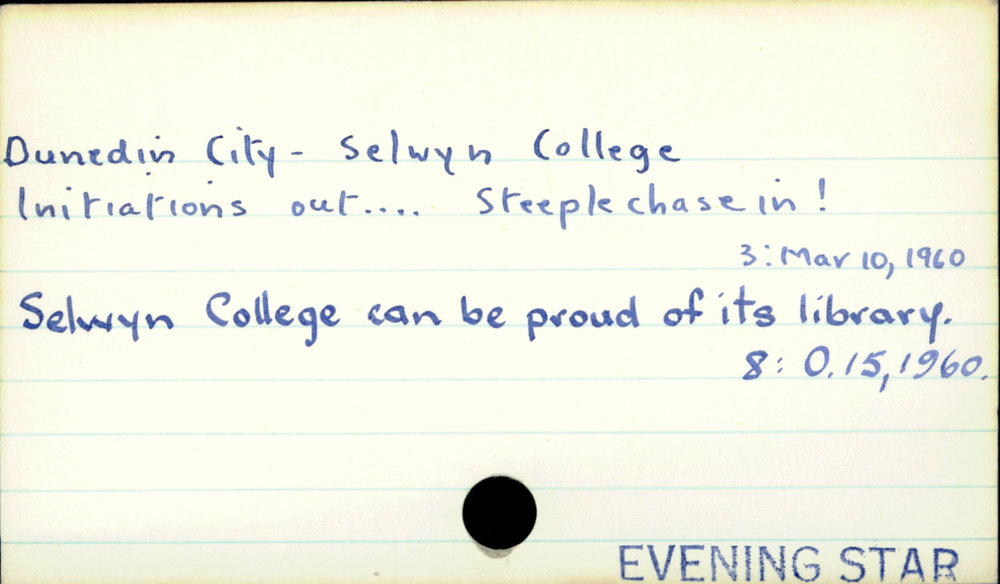 Dunedin City - Selwyn College
Initiations out.... Steeplechase in!
3: Mar 10, 1960
Selwyn College can be proud of its library.
8: O. 15, 1960.
EVENING STAR